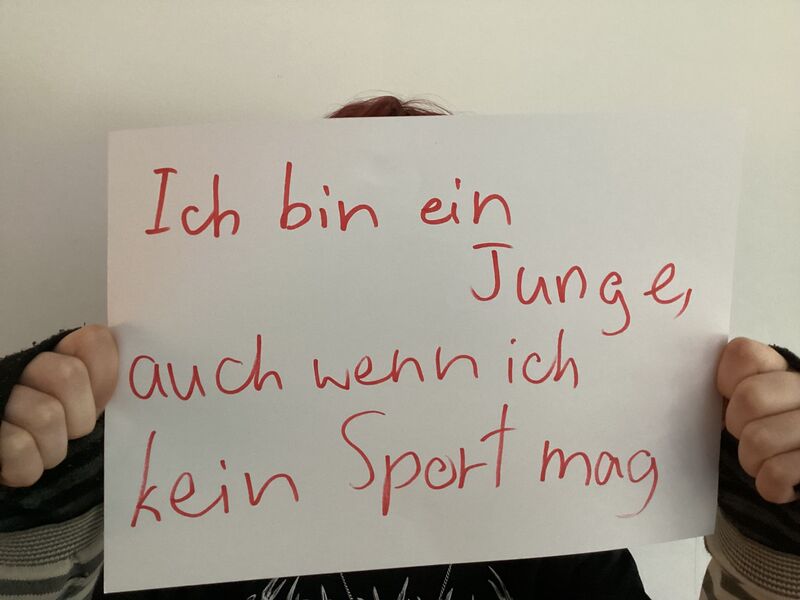 Ich bin ein
Junge,
auch wenn ich
kein Sport mag